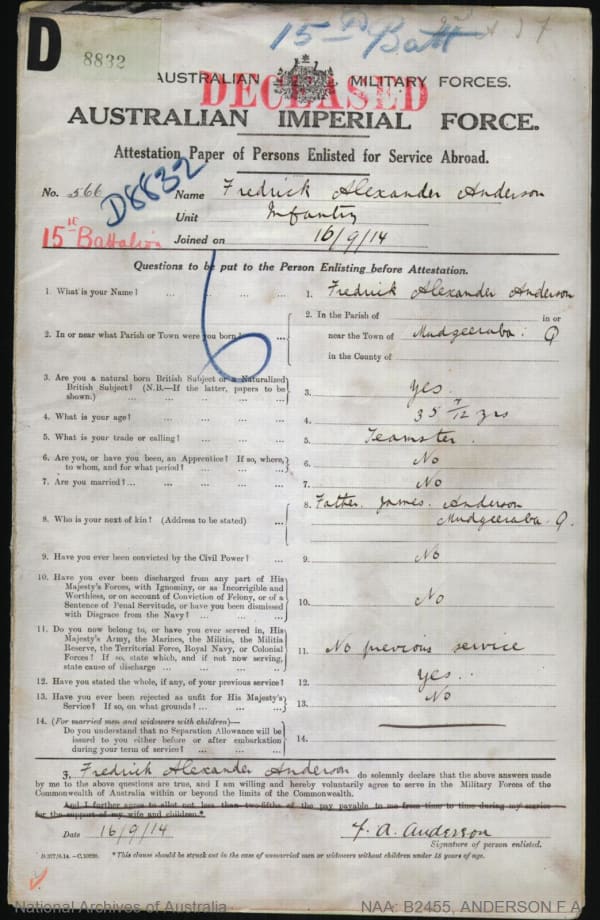 D
8832
15th Batt
AUSTRALIAN MILITARY FORCES.
DECEASED
AUSTRALIAN IMPERIAL FORCE.
Attestation Paper of Persons Enlisted for Service Abroad.
No. 566 Name Fredrick Alexander Anderson
D8832
Unit Infantry
15th Battalion Joined on 16/9/14
Questions to be put to the Person Enlisting before Attestation.
6
1. What is your Name? ... ... ... ... 1. Fredrick Alexander Anderson
2. In or near what Parish or Town were you born? ... 2. In the Parish of in or
near the Town of Mudgeeraba. Q
in the County of
3. Are you a natural born British Subject or a Naturalized
British Subject? (N.B.—If the latter, papers to be
shown.) ... ... ... ... ... 3. yes.
4. What is your age? ... ... ... ... 4. 35 7/12 yrs
5. What is your trade or calling? ... ... ... 5. Teamster.
6. Are you, or have you been, an Apprentice? If so, where,
to whom, and for what period? ... ... ... 6. No
7. Are you married? ... ... ... ... ... 7. No
8. Who is your next of kin? (Address to be stated) ... 8. Father. James. Anderson
Mudgeeraba. Q.
9. Have you ever been convicted by the Civil Power? ... 9. No
10. Have you ever been discharged from any part of His
Majesty's Forces, with Ignominy, or as Incorrigible and
Worthless, or on account of Conviction of Felony, or of a
Sentence of Penal Servitude, or have you been dismissed
with Disgrace from the Navy? ... ... ... 10. No
11. Do you now belong to, or have you ever served in, His
Majesty's Army, the Marines, the Militia, the Militia
Reserve, the Territorial Force, Royal Navy, or Colonial
Forces? If so, state which, and if not now serving,
state cause of discharge ... ... ... ... 11. No previous service
12. Have you stated the whole, if any, of your previous service? 12. yes.
13. Have you ever been rejected as unfit for His Majesty's
Service? If so, on what grounds? ... ... ... 13. No
14. (For married men and widowers with children)—
Do you understand that no Separation Allowance will be
issued to you either before or after embarkation
during your term of service? ... ... ... 14.
I, Fredrick Alexander Anderson do solemnly declare that the above answers made
by me to the above questions are true, and I am willing and hereby voluntarily agree to serve in the Military Forces of the
Commonwealth of Australia within or beyond the limits of the Commonwealth.
And I further agree to allot not less than two-fifths of the pay payable to me from time to time during my service
for the support of my wife and children.*
Date 16/9/14 F. A. Anderson
Signature of person enlisted.
*This clause should be struck out in the case of unmarried men or widowers without children under 18 years of age.
National Archives of Australia NAA: B2455, ANDERSON F A